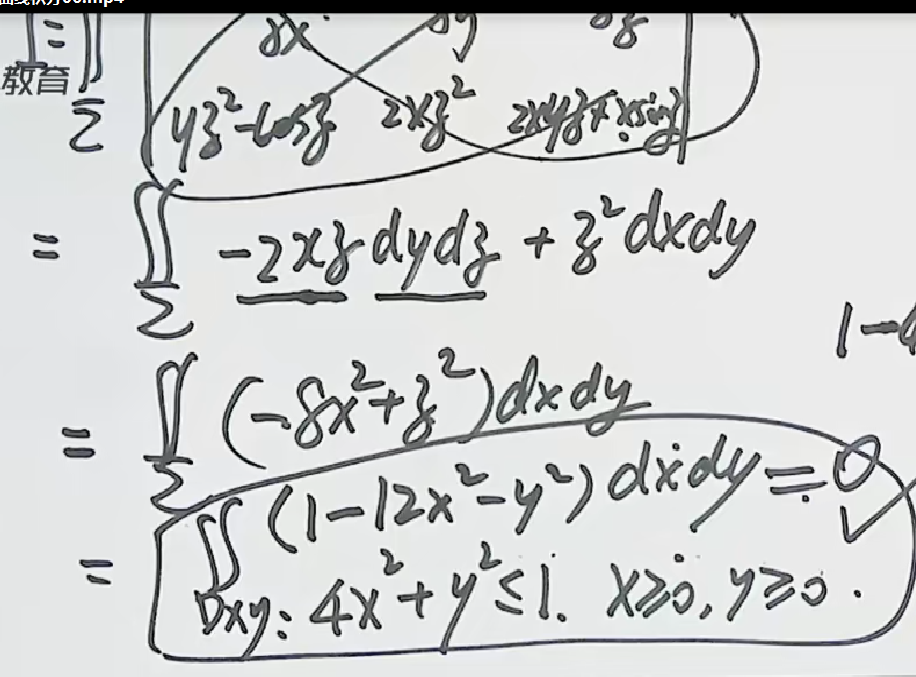 I = ∬
∂x ∂y ∂z
教育
Σ
yz²-cosz 2xz² 2xyz+xsinz
= ∬ -2xz dydz + z² dxdy
Σ
1-
= ∬ (-8x²+z²)dxdy
Σ
= ∬ (1-12x²-y²)dxdy = 0
Dxy: 4x²+y²≤1. x≥0, y≥0.